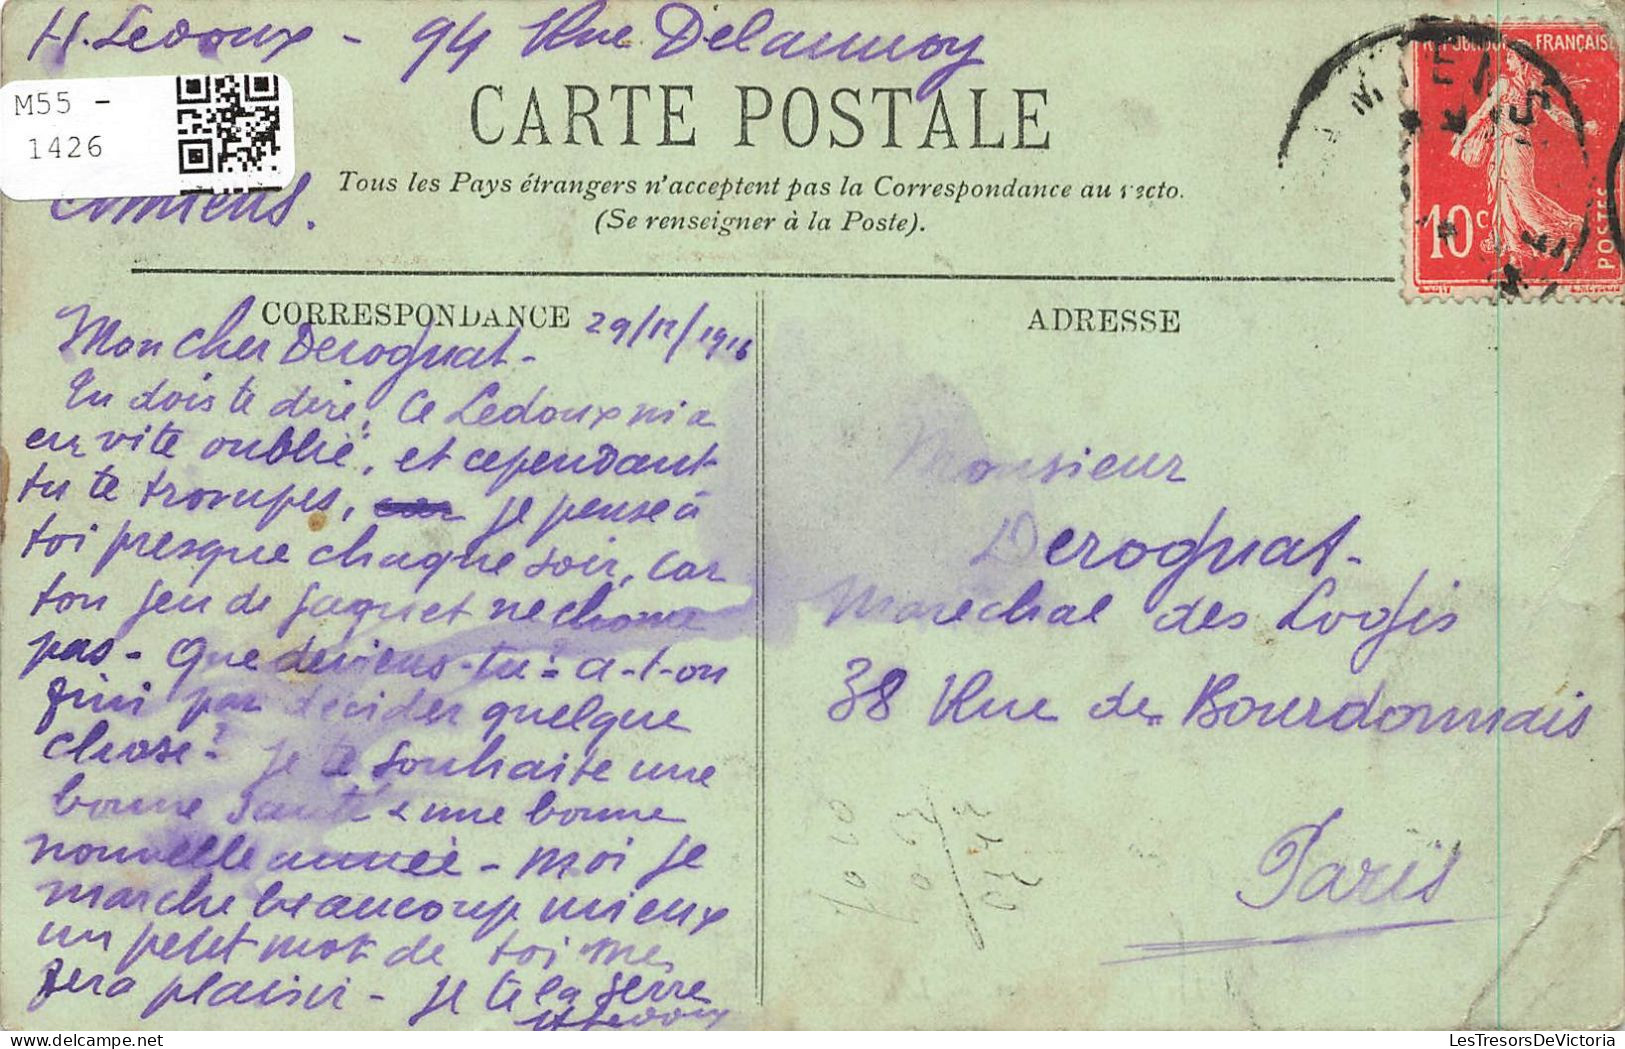 H. Ledoux - 94 Rue Delannoy
M55 -
1426
CARTE POSTALE
Amiens.
Tous les Pays étrangers n'acceptent pas la Correspondance au recto.
(Se renseigner à la Poste).
REPUBLIQUE FRANÇAISE
10c
POSTES
CORRESPONDANCE
29/12/1916
Mon cher Derognat -
Tu dois te dire, Ce Ledoux m'a
en vite oublié, et cependant
tu te trompes, je pense à
toi presque chaque soir, car
ton jeu de jaquet ne chome
pas - Que deviens-tu? a-t-on
fini par décider quelque
chose? Je te souhaite une
bonne Santé & une bonne
nouvelle année - moi je
marche beaucoup mieux
un petit mot de toi me
fera plaisir - Je te la serre
HLedoux
ADRESSE
Monsieur
Derognat -
Maréchal des Logis
38 Rue des Bourdonnais
Paris
LesTresorsDeVictoria